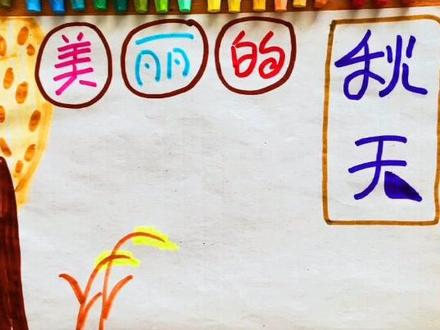 美丽的
秋天